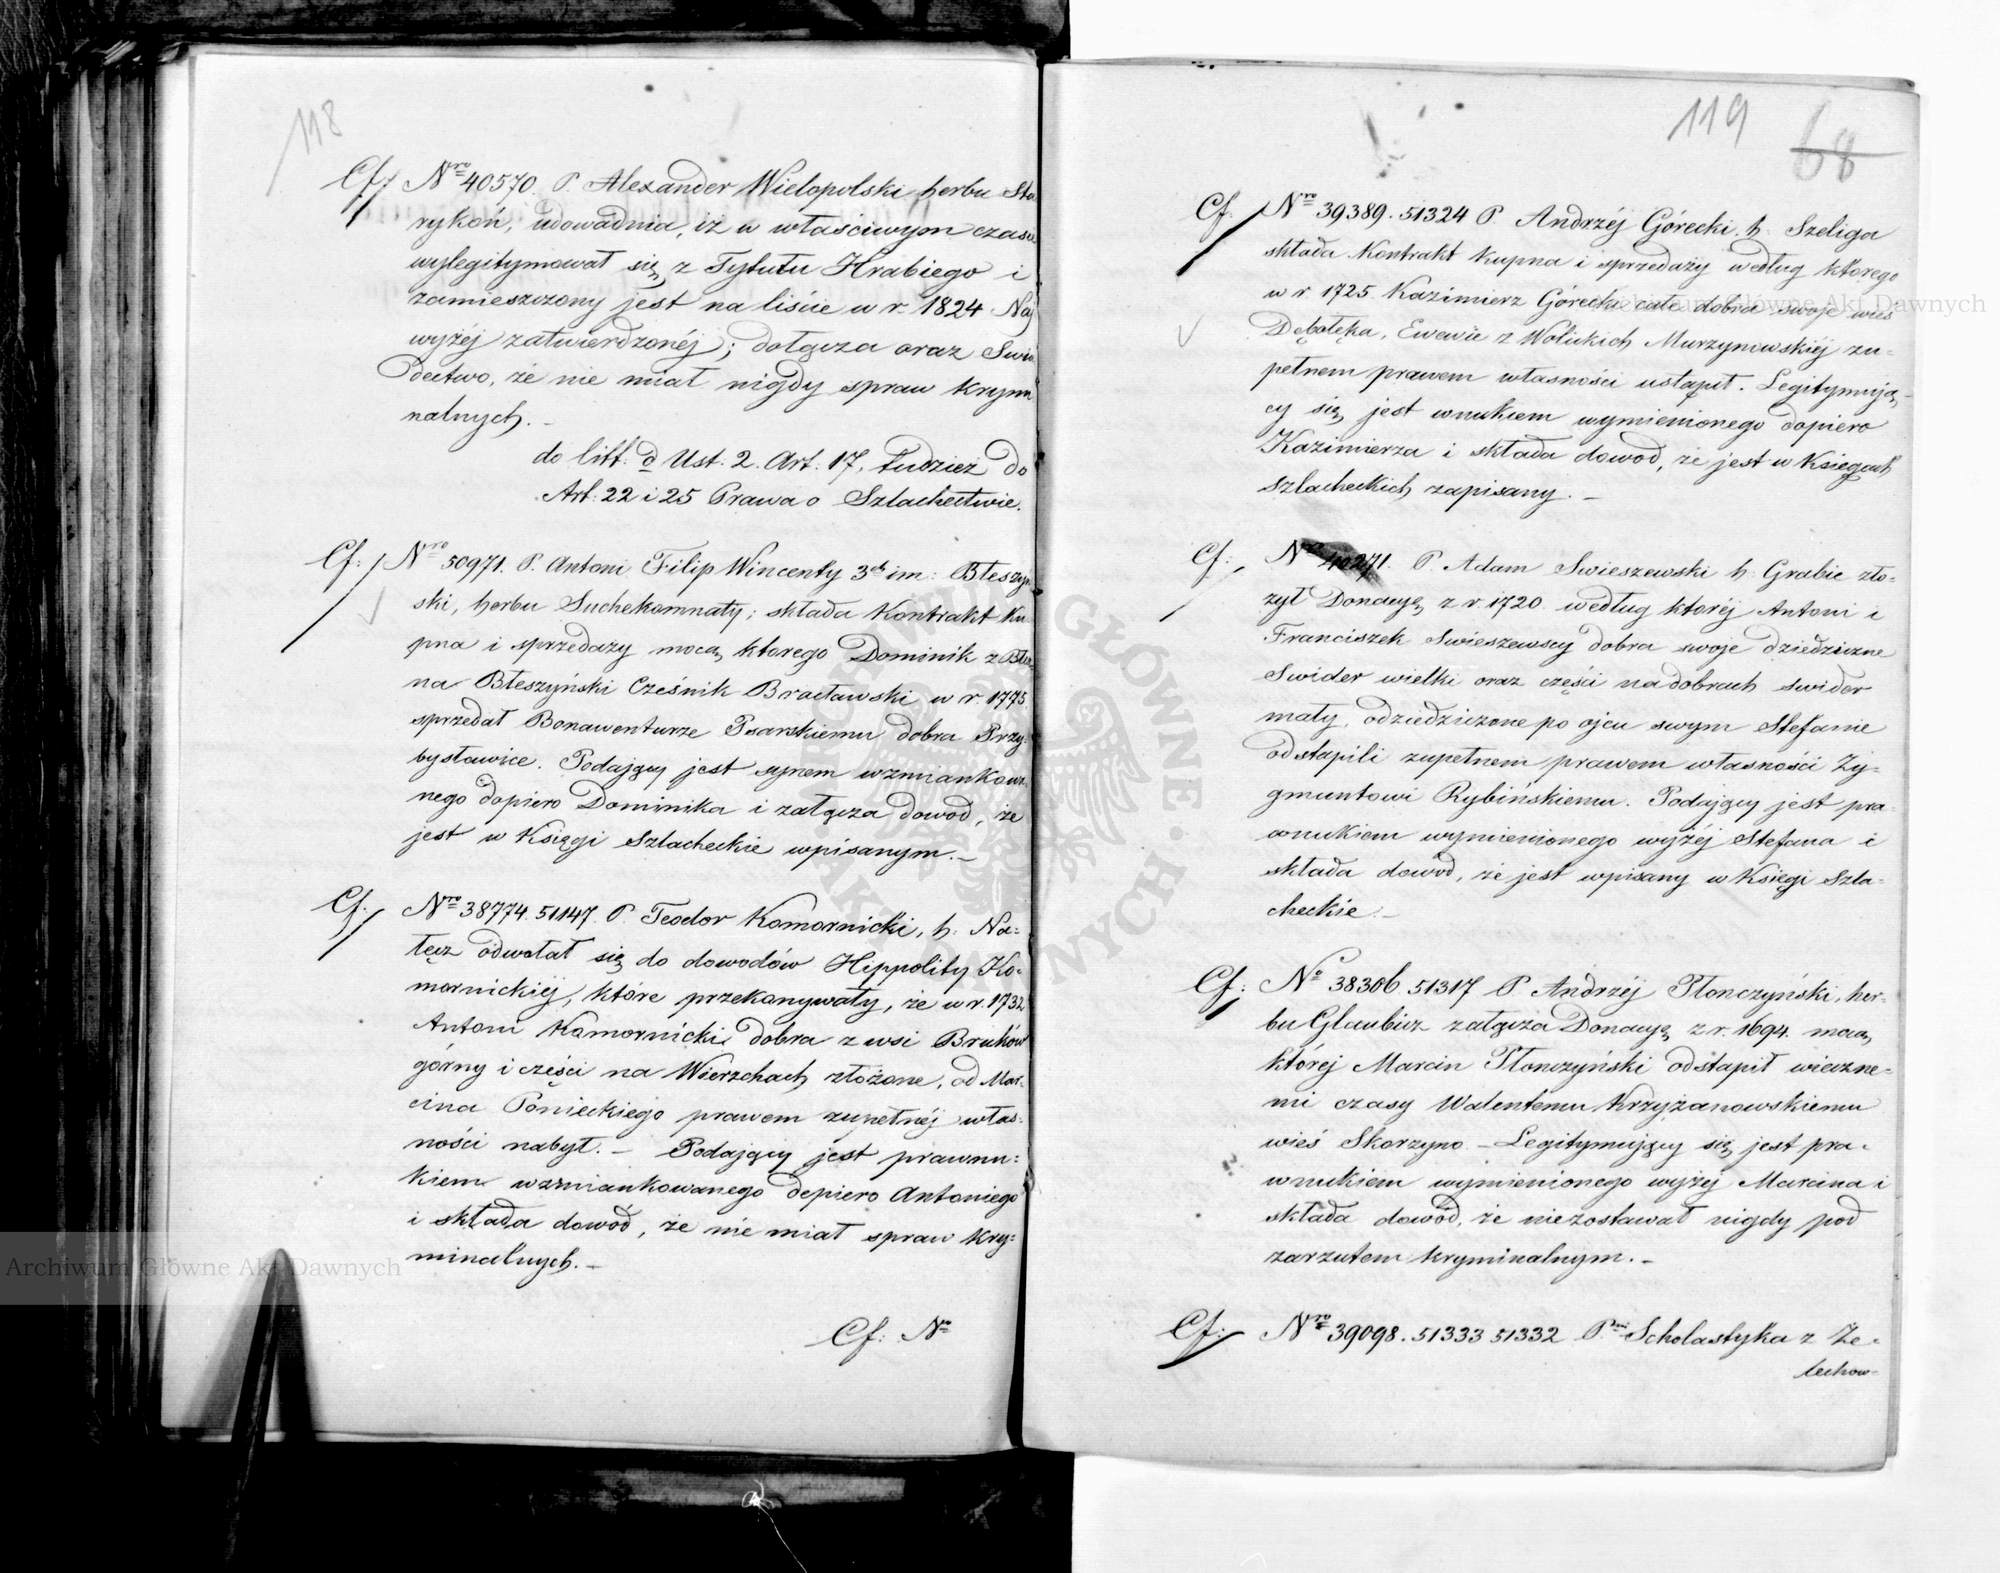 118
Cf. Nro 40570. P. Alexander Wielopolski herbu Sta
rykoń, udowadnia, iż w właściwym czasie
wylegitymował się z Tytułu Hrabiego i
zamieszczony jest na liście w r. 1824 Naj
wyżéj zatwierdzonéj; dołącza oraz Swia
dectwo, że nie miał nigdy spraw krymi
nalnych. _
do litt: d Ust. 2. Art: 17, tudzież do
Art: 22 i 25 Prawa o Szlachectwie.
Cf: Nro 50971. P. Antoni Filip Wincenty 3ch im: Błeszyń
ski, herbu Suchekomnaty; składa Kontrakt Ku
pna i sprzedaży mocą ktorego Dominik z Błesz
na Błeszyński Cześnik Bracławski w r. 1775.
sprzedał Bonawenturze Psarskiemu dobra Przy:
bysławice. Podający jest synem wzmiankowa
nego dopiero Dominika i załącza dowod, że
jest w Księgi Szlacheckie wpisanym. _
Cf. Nro 38774. 51147. P. Teodor Komornicki, h: Na=
łęcz odwołał się do dowodów Hippolity Ko=
mornickiéj, które przekonywały, że w r. 1732
Antoni Komornicki dobra z wsi Bruków
górny i części na Wierzchach złożone, od Mar=
cina Ponieckiego prawem zupełnéj włas=
ności nabył. _ Podający jest prawnu=
kiem wzmiankowanego dopiero Antoniego
i składa dowód, że nie miał spraw kry=
minalnych. _
Cf: No
119 68
Cf. Nro 39389. 51324 P. Andrzéj Górecki. h. Szeliga
składa Kontrakt kupna i sprzedaży według ktorego
w r. 1725. Kazimierz Górecki całe dobra swoje wieś
Dębołęka, Ewewie z Wolickich Murzynowskiéj zu=
pełnem prawem własności ustąpił. Legitymują=
cy się jest wnukiem wymienionego dopiero
Kazimierza i składa dowod, że jest w Księgach
szlacheckich zapisany. _
Cf: Nro 40271. P. Adam Swieszewski h: Grabie zło=
zył Donacyę z r. 1720. według któréj Antoni i
Franciszek Swieszewscy dobra swoje dziedziczne
Swider wielki oraz części na dobrach swider
mały, odziedziczone po ojcu swym Stefanie
odstąpili zupełnem prawem własności Zy=
gmuntowi Rybińskiemu. Podający jest pra=
wnukiem wymienionego wyżéj Stefana i
składa dowód, że jest wpisany w Księgi Szla=
checkie. _
Cf: No 38306 51317 P Andrzéj Tłonczyński, her=
bu Glaubicz załącza Donacyę z r. 1694. mocą
któréj Marcin Tłonczyński odstąpił wieczne=
mi czasy Walentemu Krzyżanowskiemu
wieś Skorzyno _ Legitymujący się jest pra=
wnukiem wymienionego wyżéj Marcina i
składa dowód, że niezostawał nigdy pod
zarzutem kryminalnym. _
Cf: Nro 39098. 51333 51332 Pani Scholastyka z Że=
lechow=
Archiwum Główne Akt Dawnych
Archiwum Główne Akt Dawnych
ARCHIWUM GŁÓWNE AKT DAWNYCH